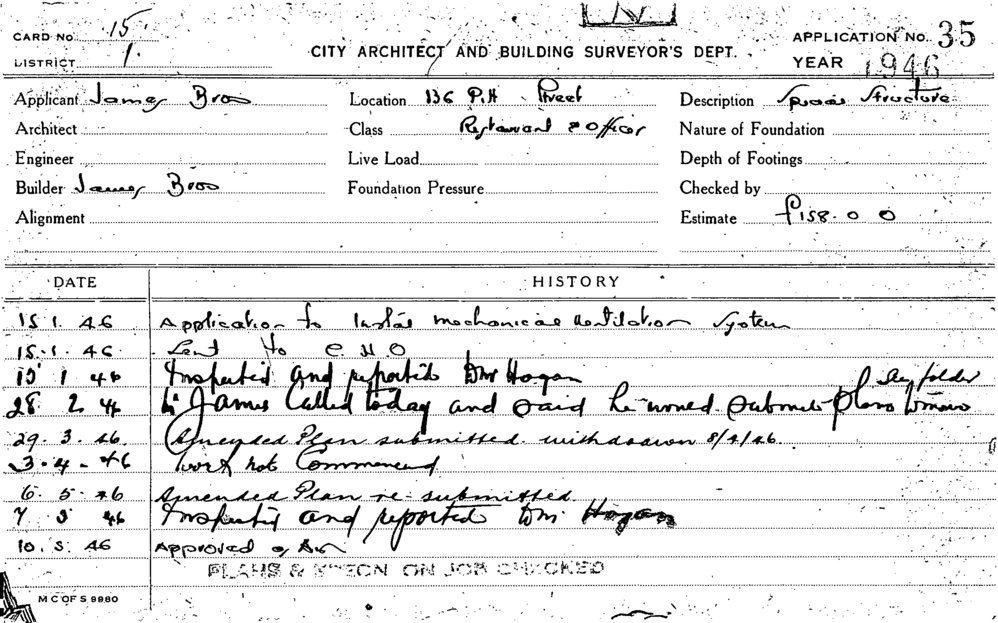 CARD No 15
DISTRICT 1
CITY ARCHITECT AND BUILDING SURVEYOR'S DEPT.
APPLICATION No. 35
YEAR 1946
Applicant James Bros Location 136 Pitt Street Description Special Structure
Architect Class Restaurant & Offices Nature of Foundation
Engineer Live Load Depth of Footings
Builder James Bros Foundation Pressure Checked by
Alignment Estimate £158.0 0
DATE HISTORY
15.1.46 Application to Instal mechanical ventilation System
15.1.46 Sent to C H O
15 1 46 Inspected and reported Hogan
28 2 46 Mr James Called today and said he would submit plans folder
29.3.46 Amended Plan submitted. withdrawn 8/4/46
3-4-46 Work not Commenced
6.5.46 Amended Plan re-submitted.
7 5 46 Inspected and reported Hogan
10.5.46 Approved
PLANS & SPECN ON JOB CHECKED
M C OF S 9980